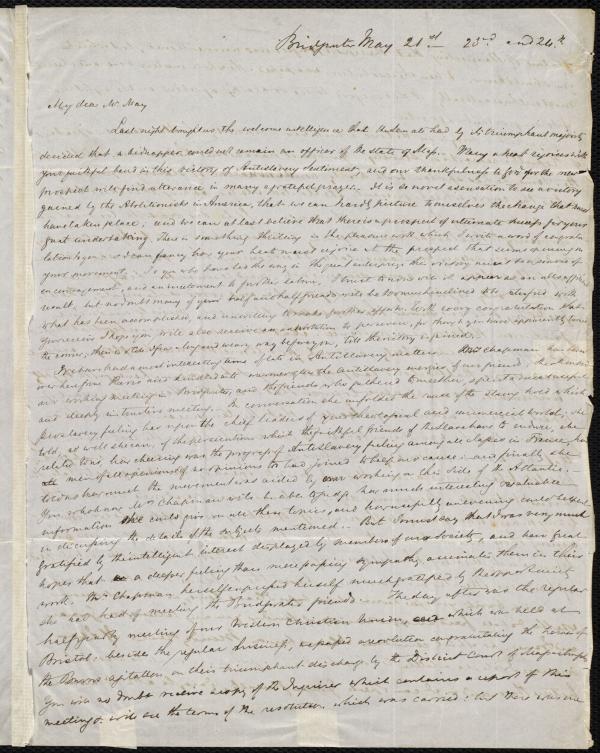 Bridgwater May 21st 23rd and 24th
My dear Mr May
Last night brought us the welcome intelligence that the Senate had by its triumphant majority
decided that a kidnapper could not remain an officer of the state of Mass. Many a heart rejoices with
your faithful band in this victory of Antislavery Sentiment, and our thankfulness to God for the new
prospect will find utterance in many a grateful prayer. It is so novel a sensation to see a victory
gained by the Abolitionists in America, that we can hardly picture to ourselves the change that must
have taken place; and we can at last believe that there is a prospect of ultimate success for your
great undertaking. There is something thrilling in the pleasure with which I write a word of congratu-
lation to you. I can fancy how your heart must rejoice at the prospect that seems opening on
your movement. To you who have led the way in the great enterprise this victory must be a source of
encouragement, and an incitement to further labour, I trust to none will it appear as an all sufficient
result, but no doubt many of your half and half friends will be too much inclined to be satisfied with
what has been accomplished, and unwilling to make further efforts. With every congratulation that
you receive I hope you will also receive an exhortation to persevere, for though you have apparently turned
the corner, there is still a long and weary way before you, till the victory is gained.
We have had a most interesting time of late in Antislavery matters. Mrs Chapman has been
over here from Paris and kindled into warmer glow the Antislavery energies of our friends. She came to
our working meeting in Bridgwater, and the friends who gathered together, spent a most useful
and deeply interesting meeting. In conversation she unfolded the mass of the slavery hold which
proslavery feeling has upon the chief leaders of your theological and commercial world; she
told, as well she can, of the persecutions which the faithful friends of the slave have to endure, she
related to us, how cheering was the progress of Antislavery feeling among all classes in France, how
the men of all opinions & of no opinions too had joined to help our cause: and finally she
told us how much the movement was aided by our working on this side of the Atlantic.
You who know Mrs Chapman will be able to judge how much interesting & valuable
information she could give on all these topics, and how usefully and cunning could be spent
in discussing the details of the subjects mentioned. But I must say that I was very much
gratified by the intelligent interest displayed by members of our Society, and have great
hopes that a deeper feeling than mere passing sympathy animates them in their
work. Mrs Chapman herself expressed herself much gratified by the opportunity
she had had of meeting the Bridgwater friends. The day after was the regular
half yearly meeting of our Western Christian Union, which was held at
Bristol: beside the regular business, we passed a resolution congratulating the heroes of
the Burns agitation, on their triumphant discharge by the District Court of Massachusetts
You will no doubt receive a copy of the Inquirer which contains a report of this
meeting & will see the terms of the resolution which was carried: but there was one